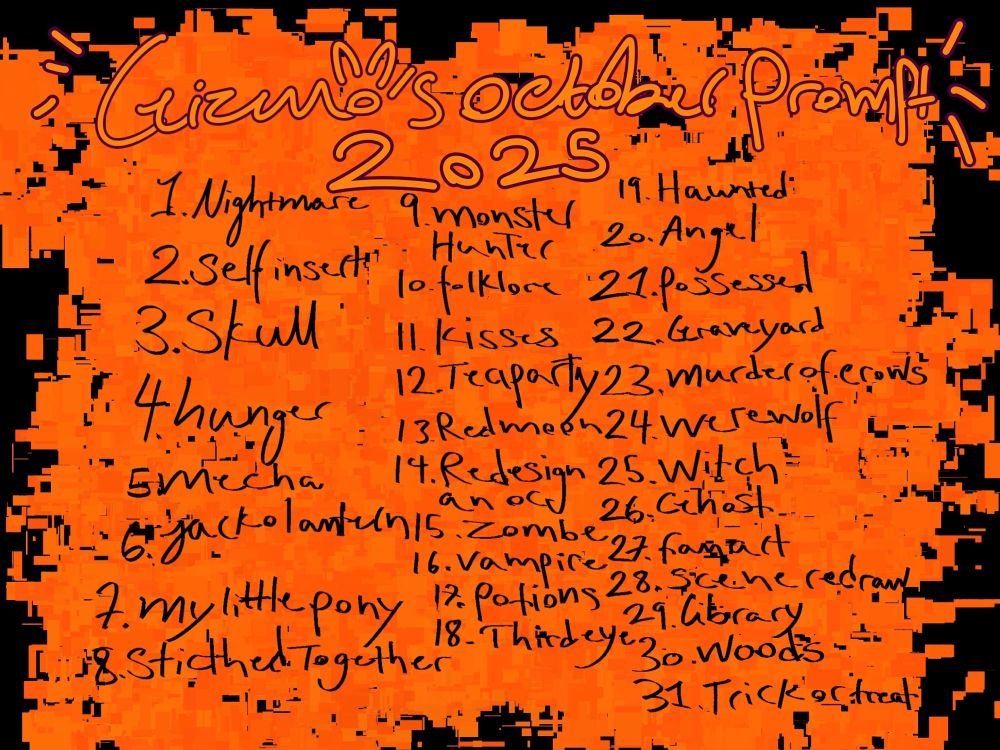 Gizmo's October Prompt
2025
1. Nightmare
2. Self insert
3. Skull
4. hunger
5. Mecha
6. jackolantern
7. my little pony
8. Sticthed Together
9. monster
Hunter
10. folklore
11. Kisses
12. Teaparty
13. Redmoon
14. Redesign
an oc
15. Zombe
16. Vampire
17. Potions
18. Third eye
19. Haunted
20. Angel
21. Possessed
22. Graveyard
23. murder of crows
24. Werewolf
25. Witch
26. Ghost
27. fanart
28. Scene redraw
29. Library
30. Woods
31. Trick or treat